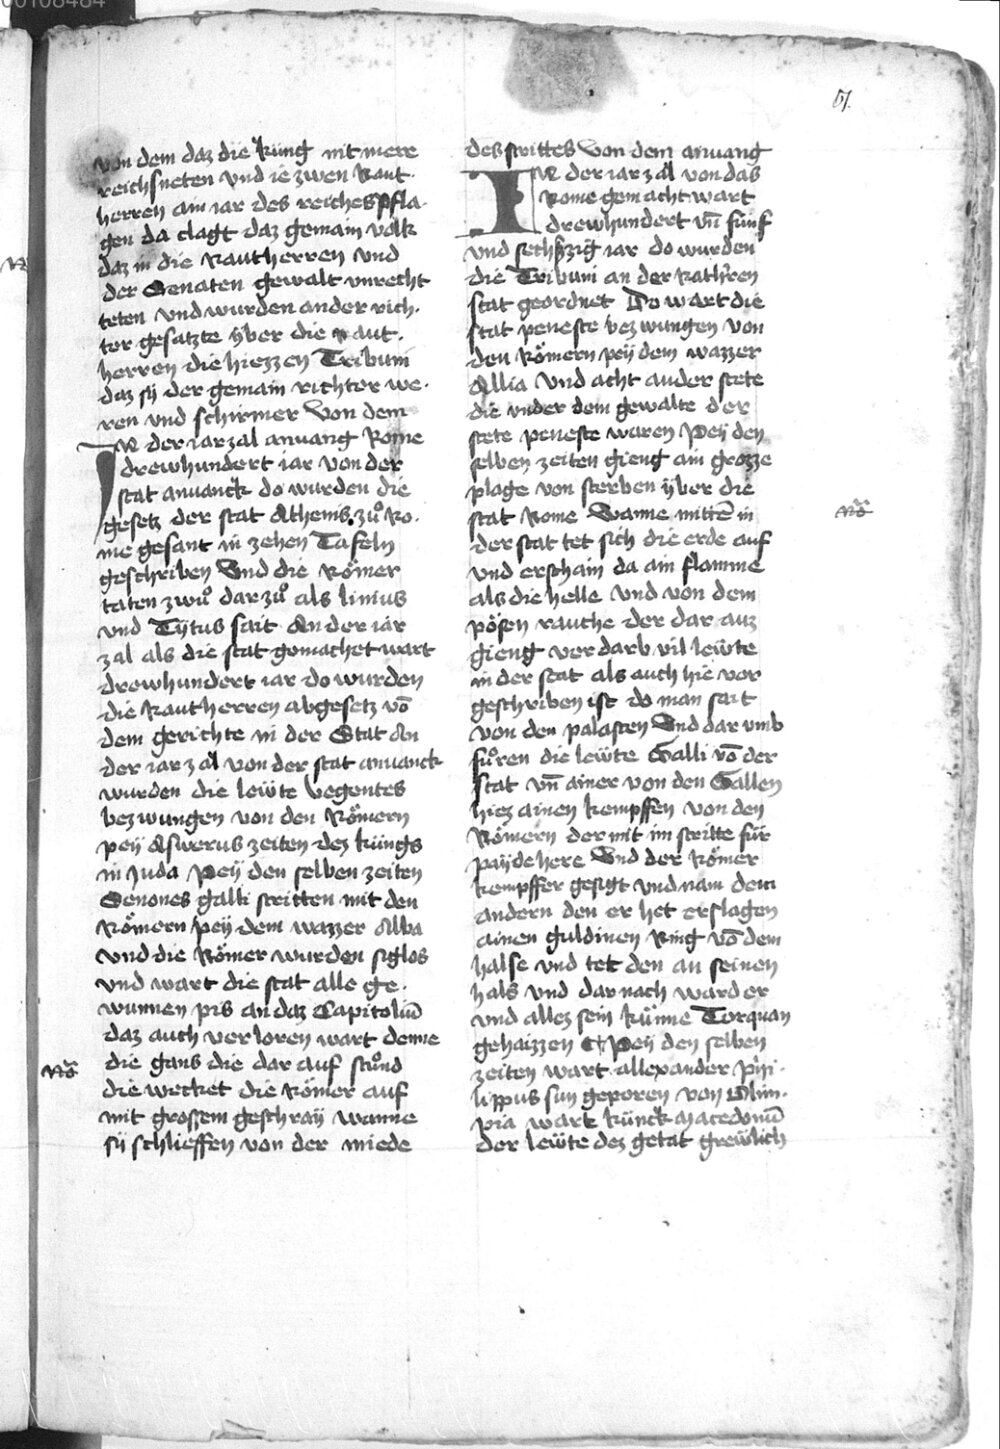 00108484
61
von dem daz die kung nit mere
reichsneten vnd ie zwen Raut
herren am iar des reiches pfla-
gen da clagt daz gemain volk
daz in die Rautherren vnd
der Senaten gewalt vnrecht
teten vnd wurden ander rich-
ter gesatzte vͤber die raut-
herren die hiezzen Tribuni
daz sy der gemain richter we-
ren vnd schirmer Von dem
IN der iarzal anuang Rome
drewhundert iar von der
stat anuanck do wurden die
gesetz der stat Athenis zuͦ Ro-
me gesant in zehen Tafeln
geschriben Vnd die Roͤmer
taten zwuͦ darzuͦ als liuius
vnd Tytus sait An der iar
zal als die stat gemachet wart
drewhundert iar do wurden
die Rautherren abgesetz vō
dem gerichte in der Stat An
der iarzal von der stat anuanck
wurden die lewte vegentes
bezwungen von den Roͤmern
pey Aswerus zeiten dez kuͤngs
in Juda Pey den selben zeiten
Senones galli stritten mit den
Roͤmern pey dem wazzer Alba
vnd die Roͤmer wurden siglos
vnd wart die stat alle ge-
wunnen pis an daz Capitoliū
daz auch verloren wart denne
Rō
die gans die dar auf stuͦnd
die wecket die Roͤmer auf
mit grossem geschray wanne
sy schlieffen von der miede
des strittes Von dem anuang
IN der iarzal von das
Rome gemacht wart
drewhundert vn̄ funf
vnd sechszig iar do wurden
die Tribuni an der Rathren
stat geordnet Do wart die
stat peneste bezwungen von
den Roͤmern pey dem wazzer
Allia vnd acht ander stete
die vnder dem gewalte der
stete peneste waren Pey den
selben zeiten gieng ain grozze
plage von sterben vͤber die
stat Rome Wanne mittē in
Rō
der stat tet sich die erde auf
vnd erschain da ain flamme
als die helle vnd von dem
poͤsen rauche der dar auz
gieng verdarb vil lewte
in der stat als auch hie vor
geschriben ist do man sait
von den palasten Vnd dar vmb
fuͦren die lewte Galli vō der
stat vn̄ ainer von den Gallen
hiez ainen kempffen von den
Roͤmern der mit im stritte fuͤr
payde here Vnd der Roͤmer
kempffer gesigt vnd nam dem
andern den er het erslagen
ainen guldinen Ring vō dem
halse vnd tet den an seinen
hals vnd darnach ward er
vnd allez sein kuͤnne Torquan
gehaizzen Pey den selben
zeiten wart allexander phi-
lippus sun geporen von Olim-
pia wart kuͤnck macedoniū
der lewte dez getat grewlich